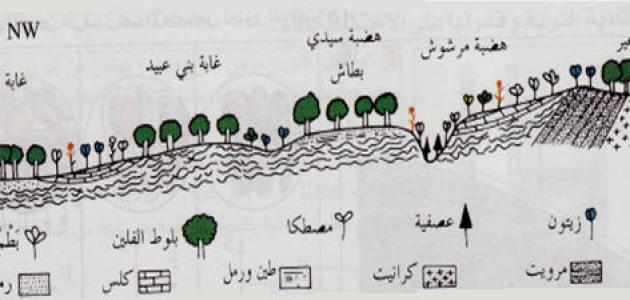 NW
هضبة سيدي بطاش
هضبة مرشوش
غابة بني عبيد
غابة
زيتون
عصفية
مصطكا
بلوط الفلين
مرويت
كرانيت
طين ورمل
كلس